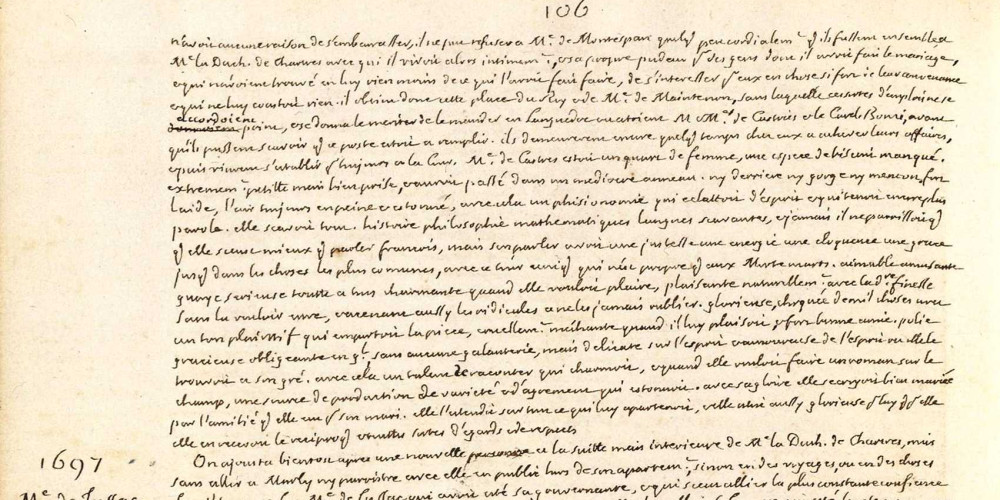 106
n'avoit aucune raison de s'embarasser, il ne put refuser a Me de Montespan quelq peu cordialemt q ils fussent ensemble a
Me la Duch. de Chartres avec qui il vivoit alors intimemt, et a propre pudeur p des gens dont il avoit fait le mariage,
et qui n'avoient trouvé en luy rien moins de ce qui l'avoit fait faire, de s'interesser p eux en chose si fort a leur convenance
et qui ne luy coustoit rien. il obtint donc cette place du Roy et de Me de Maintenon, sans laquelle ces sortes d'emplois ne se
accordoient
donnoient point, et se donna le merite de le mander en Languedoc ou etoient M et Me de Castres et le Card. Bonzi, avant
qu'ils pussent scavoir q ce poste etoit a remplir. ils demeurerent encore quelq temps chez eux a achever leurs affaires,
et puis vinrent s'establir p toujours a la Cour. Me de Castres estoit un quart de femme, une espece de biscuit manqué.
extrememt petitte mais bien prise, et auroit passé dans un mediocre anneau. ny derriere ny gorge ny menton, fort
laide, l'air toujours en peine et estonné, avec cela une phisionomie qui eclattoit d'esprit et qui tenoit encore plus
parole. elle scavoit tout. histoire philosophie mathematiques langues scavantes, et jamais il ne paroissoit q
q elle sceust mieux q parler francois, mais son parler avoit une justesse une energie une eloquence une grace
jusq dans les choses les plus comunes, avec ce tour uniq qui n'est propre q aux Mortemarts. aimable amusante
gaye serieuse toutte a tous charmante quand elle vouloit plaire, plaisante naturellemt avec la dre finesse
sans la vouloir estre, et assenant aussy les ridicules a ne les jamais oublier. glorieuse, choquée de mil choses avec
un ton plaintif qui emportoit la piece, cruellemt mechante quand il luy plaisoit et fort bonne amie. polie
gracieuse obligeante en gl sans aucune galanterie, mais delicate sur l'esprit et amoureuse de l'esprit ou elle le
trouvoit a son gré. avec cela un talent de raconter qui charmoit, et quand elle vouloit faire un roman sur le
champ, une source de production de varieté et d'agrement qui estonnoit. avec sa gloire elle se croyoit bien mariée
par l'amitié q elle eut p son mari. elle l'etendit sur tout ce qui luy apartenoit, et elle etoit aussy glorieuse p luy q p elle
elle en recevoit le reciproq et touttes sortes d'egards et de respects
On ajousta bientost apres une nouvelle a la suitte mais interieure de Me la Duch. de Chartres, mais
1697
sans aller a Marly ny paroistre avec elle en public hors de son apartemt, sinon en des voyages, ou en des choses
Me de Jussac
Me de Jussac qui avoit eté sa gouvernante, et qui sceut allier la plus constante confiance